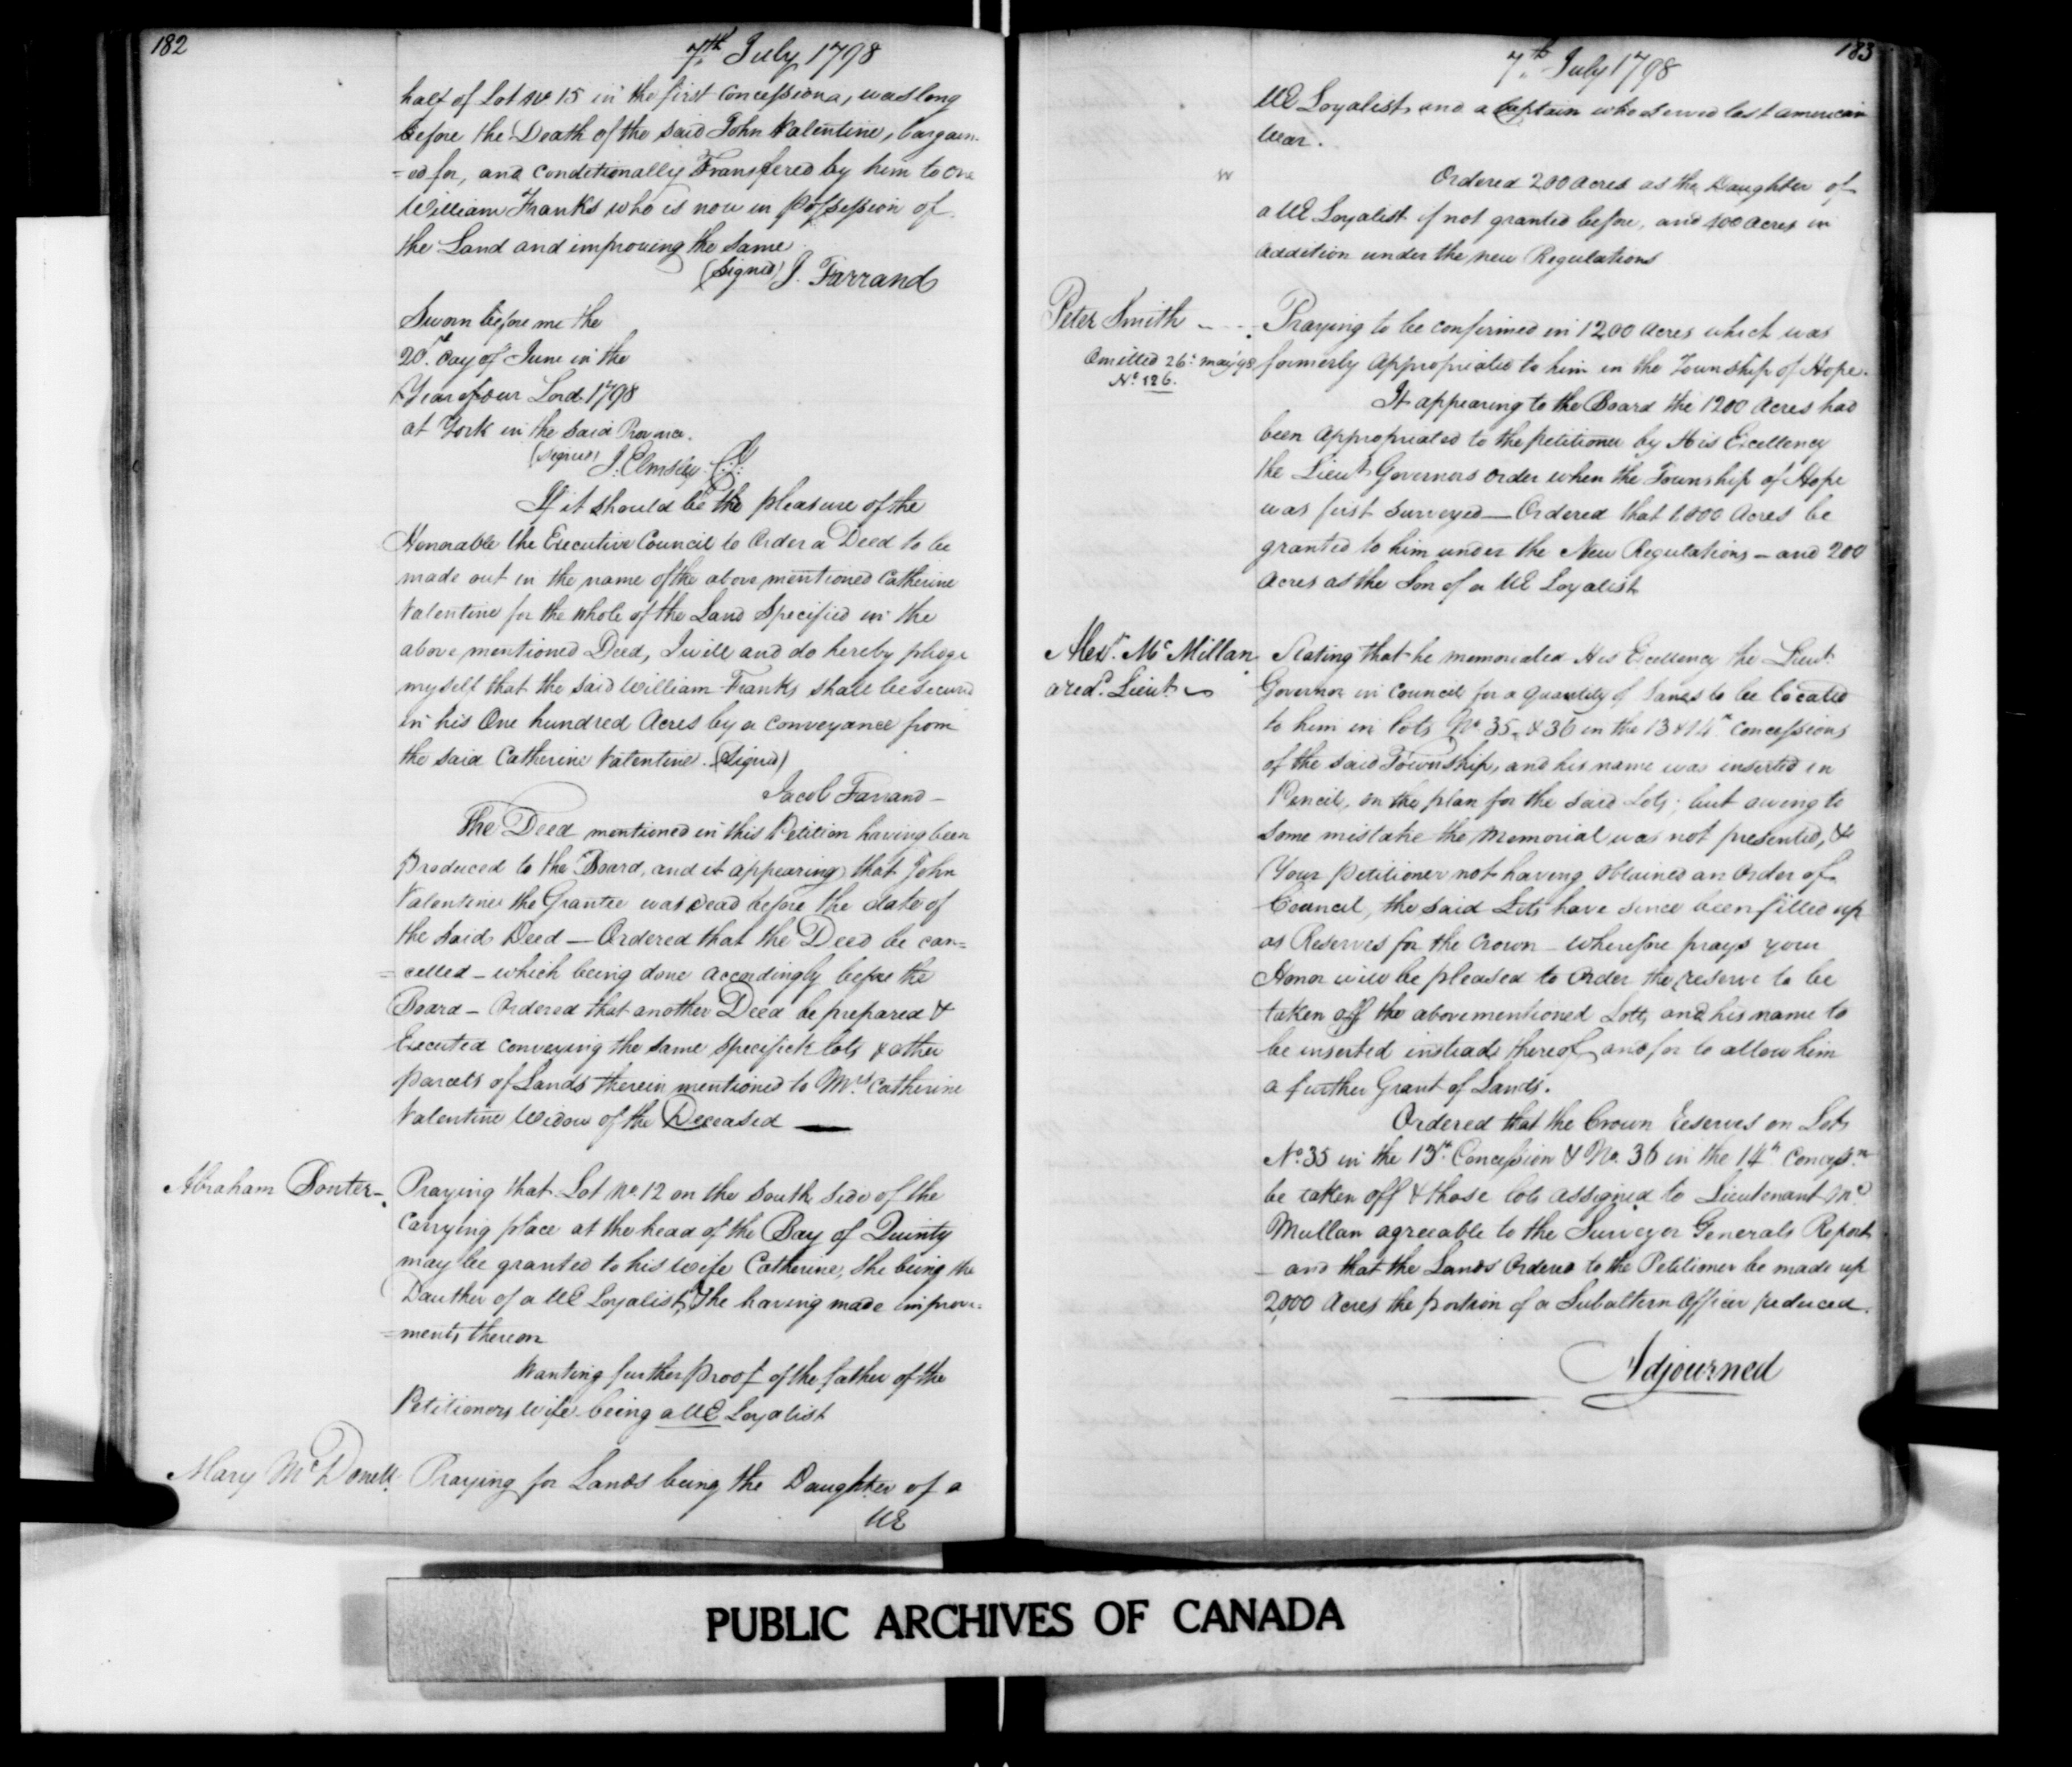 182
7th July 1798
half of Lot No 15 in the first Concessiona, was long
before the Death of the said John Valentine, bargain-
=ed for, and conditionally Transfered by him to one
William Franks who is now in possession of
the Land and improving the same
(Signed) J. Farrand
Sworn before me the
20th day of June in the
Year of our Lord 1798
at York in the said Province.
(signed) J. Elmsley C:J:
If it should be the pleasure of the
Honorable the Executive Council to Order a Deed to be
made out in the name of the above mentioned Catherine
Valentine for the whole of the Land Specified in the
above mentioned Deed, I will and do hereby pledge
myself that the said William Franks shall be secured
in his One hundred Acres by a conveyance from
the said Catherine Valentine. (Signed)
Jacob Farrand -
The Deed mentioned in this Petition having been
produced to the Board, and it appearing that John
Valentine the Grantee was dead before the date of
the said Deed — Ordered that the Deed be can=
=celled - which being done accordingly before the
Board - Ordered that another Deed be prepared &
Executed conveying the same specifick lots & other
parcels of Lands therein mentioned to Mrs Catherine
Valentine Widow of the Deceased —
Abraham Bonter - Praying that Lot No 12 on the South side of the
Carrying place at the head of the Bay of Quinty
may be granted to his Wife Catherine, She being the
Dauther of a UE Loyalist, & he having made improve=
=ments thereon
Wanting further proof of the father of the
Petitioners Wife being a UE Loyalist
Mary McDonell. Praying for Lands being the Daughter of a
UE
183
7th July 1798
UE Loyalist, and a Captain who served last american
War.
Ordered 200 acres as the Daughter of
a UE Loyalist if not granted before, and 400 acres in
addition under the new Regulations
Peter Smith - - - Praying to be confirmed in 1200 Acres which was
Omitted 26: may 98 formerly Appropriated to him in the Township of Hope.
No 126.
It appearing to the Board the 1200 Acres had
been Appropriated to the petitioner by His Excellency
the Lieut Governors order when the Township of Hope
was first Surveyed — Ordered that 1,000 Acres be
granted to him under the New Regulations - and 200
Acres as the Son of a UE Loyalist
Alexr. McMillan Stating that he memorialed His Excellency the Lieut
a red. Lieut Governor in Council for a quantity of Lands to be located
to him in lots No 35 & 36 in the 13 & 14th Concessions
of the said Township, and his name was inserted in
Pencil, on the plan for the said Lots; but owing to
some mistake the Memorial was not presented, &
Your petitioner not having obtained an Order of
Council, the said Lots have since been filled up
as Reserves for the Crown - Wherefore prays your
Honor will be pleased to Order the reserve to be
taken off the abovementioned Lotts, and his name to
be inserted instead thereof, and for to allow him
a further Grant of Lands.
Ordered that the Crown Reserves on Lots
No. 35 in the 13th Concession & No. 36 in the 14th Concessn
be taken off & those lots assigned to Lieutenant Mc
Mullan agreeable to the Surveyor Generals Report
- and that the Lands Ordered to the Petitioner be made up
2,000 Acres the portion of a Subaltern Officer reduced.
Adjourned
PUBLIC ARCHIVES OF CANADA